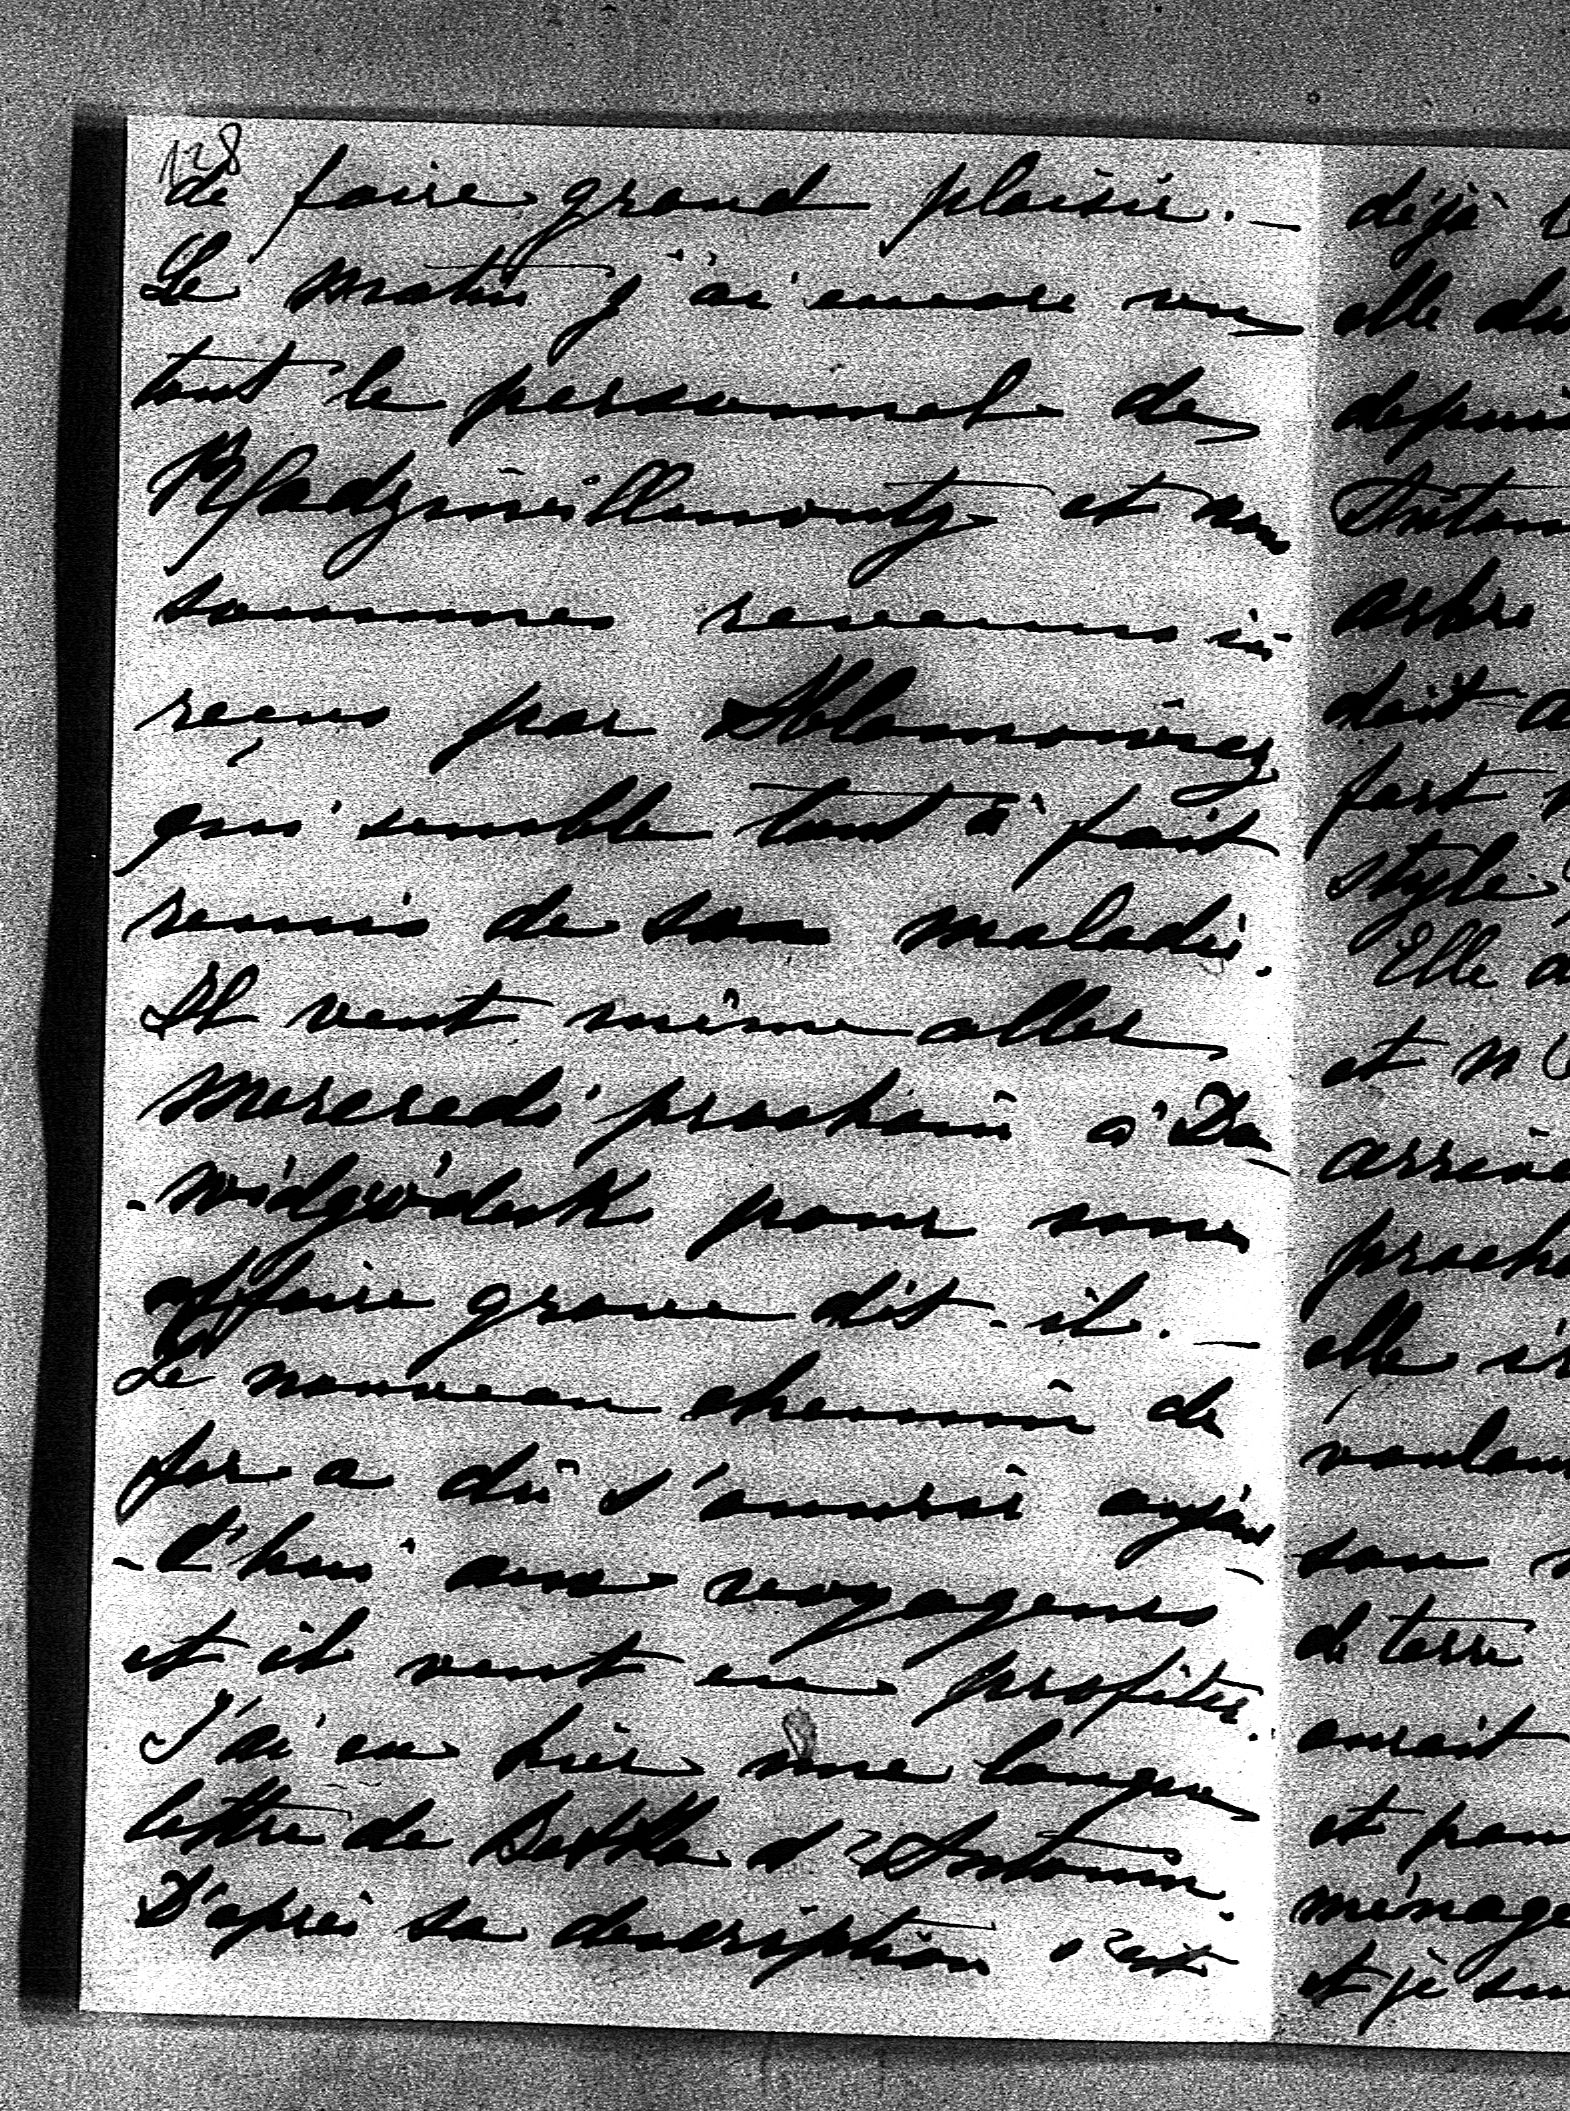 128
de faire grand plaisir. —
Le matin j'ai encore vu
tout le personnel de
Radziwillimontz et nous
sommes revenus ici
reçus par Ablamowicz
qui semble tout à fait
remis de sa maladie.
Il veut même aller
mercredi prochain à Da-
-widgródek pour une
affaire grave dit-il. —
Le nouveau chemin de
fer a dû s'ouvrir aujour
-d'hui aux voyageurs
et il veut en profiter.
J'ai eu hier une longue
lettre de Betka d'Antonin.
D'après sa description c'est
déjà
elle
depuis
Anton
arbre
doit a
fort
style
Elle a
et n'
arrive
proch
elle
voulou
son
de terre
aurait
et pour
ménage
et je